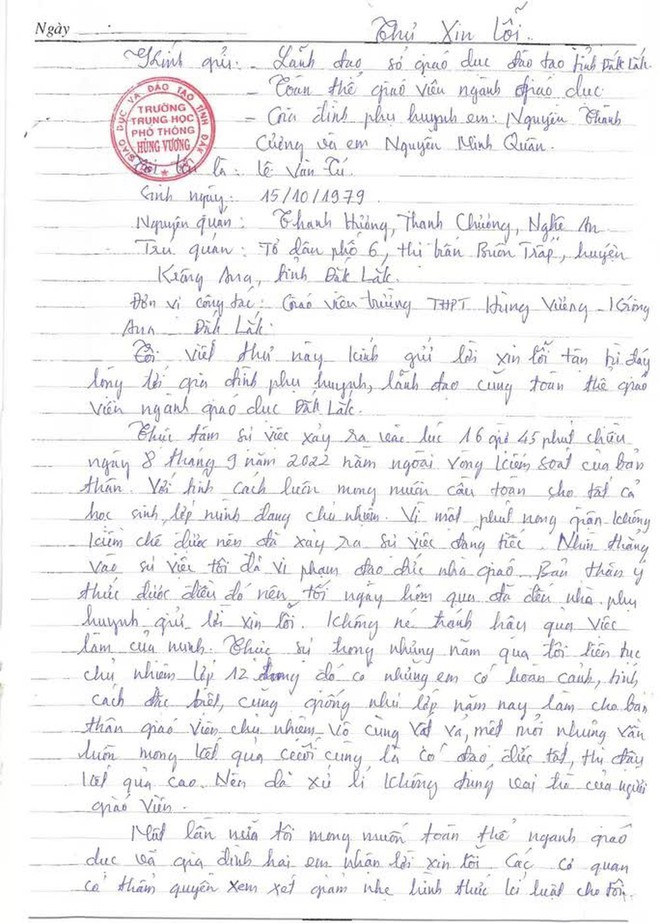 Ngày
Thư Xin lỗi.
Kính gửi: - Lãnh đạo sở giáo dục đào tạo tỉnh Đắk Lắk.
- Toàn thể giáo viên ngành giáo dục.
- Gia đình phụ huynh em: Nguyễn Thành
Cường và em Nguyễn Minh Quân.
SỞ GIÁO DỤC VÀ ĐÀO TẠO TỈNH ĐẮK
TRƯỜNG
TRUNG HỌC
PHỔ THÔNG
HÙNG VƯƠNG
Tôi tên là: Lê Văn Tú
Sinh ngày: 15/10/1979
Nguyên quán: Thanh Hương, Thanh Chương, Nghệ An
Trú quán: Tổ dân phố 6, thị trấn Buôn Trấp, huyện
Krông Ana, tỉnh Đắk Lắk.
Đơn vị công tác: Giáo viên trường THPT Hùng Vương - Krông
Ana - Đắk Lắk.
Tôi viết thư này kính gửi lời xin lỗi tận từ đáy
lòng tới gia đình phụ huynh, lãnh đạo cùng toàn thể giáo
viên ngành giáo dục Đắk Lắk.
Thực tâm sự việc xảy ra vào lúc 16 giờ 45 phút chiều
ngày 8 tháng 9 năm 2022 nằm ngoài vòng kiểm soát của bản
thân. Với tính cách luôn mong muốn cầu toàn cho tất cả
học sinh, lớp mình đang chủ nhiệm. Vì một phút nóng giận không
kiềm chế được nên đã xảy ra sự việc đáng tiếc. Nhìn thẳng
vào sự việc tôi đã vi phạm đạo đức nhà giáo. Bản thân ý
thức được điều đó nên tối ngày hôm qua đã đến nhà phụ
huynh gửi lời xin lỗi. Không né tránh hậu quả việc
làm của mình. Thực sự trong những năm qua tôi liên tục
chủ nhiệm lớp 12 trong đó có những em có hoàn cảnh, tính
cách đặc biệt, cũng giống như lớp năm nay làm cho bản
thân giáo viên chủ nhiệm vô cùng vất vả, mệt mỏi nhưng vẫn
luôn mong kết quả cuối cùng là có đạo đức tốt, thi đậu
kết quả cao. Nên đã xử lí không đúng vai trò của người
giáo viên.
Một lần nữa tôi mong muốn toàn thể ngành giáo
dục và gia đình hai em nhận lời xin lỗi. Các cơ quan
có thẩm quyền xem xét giảm nhẹ hình thức kỉ luật cho tôi.